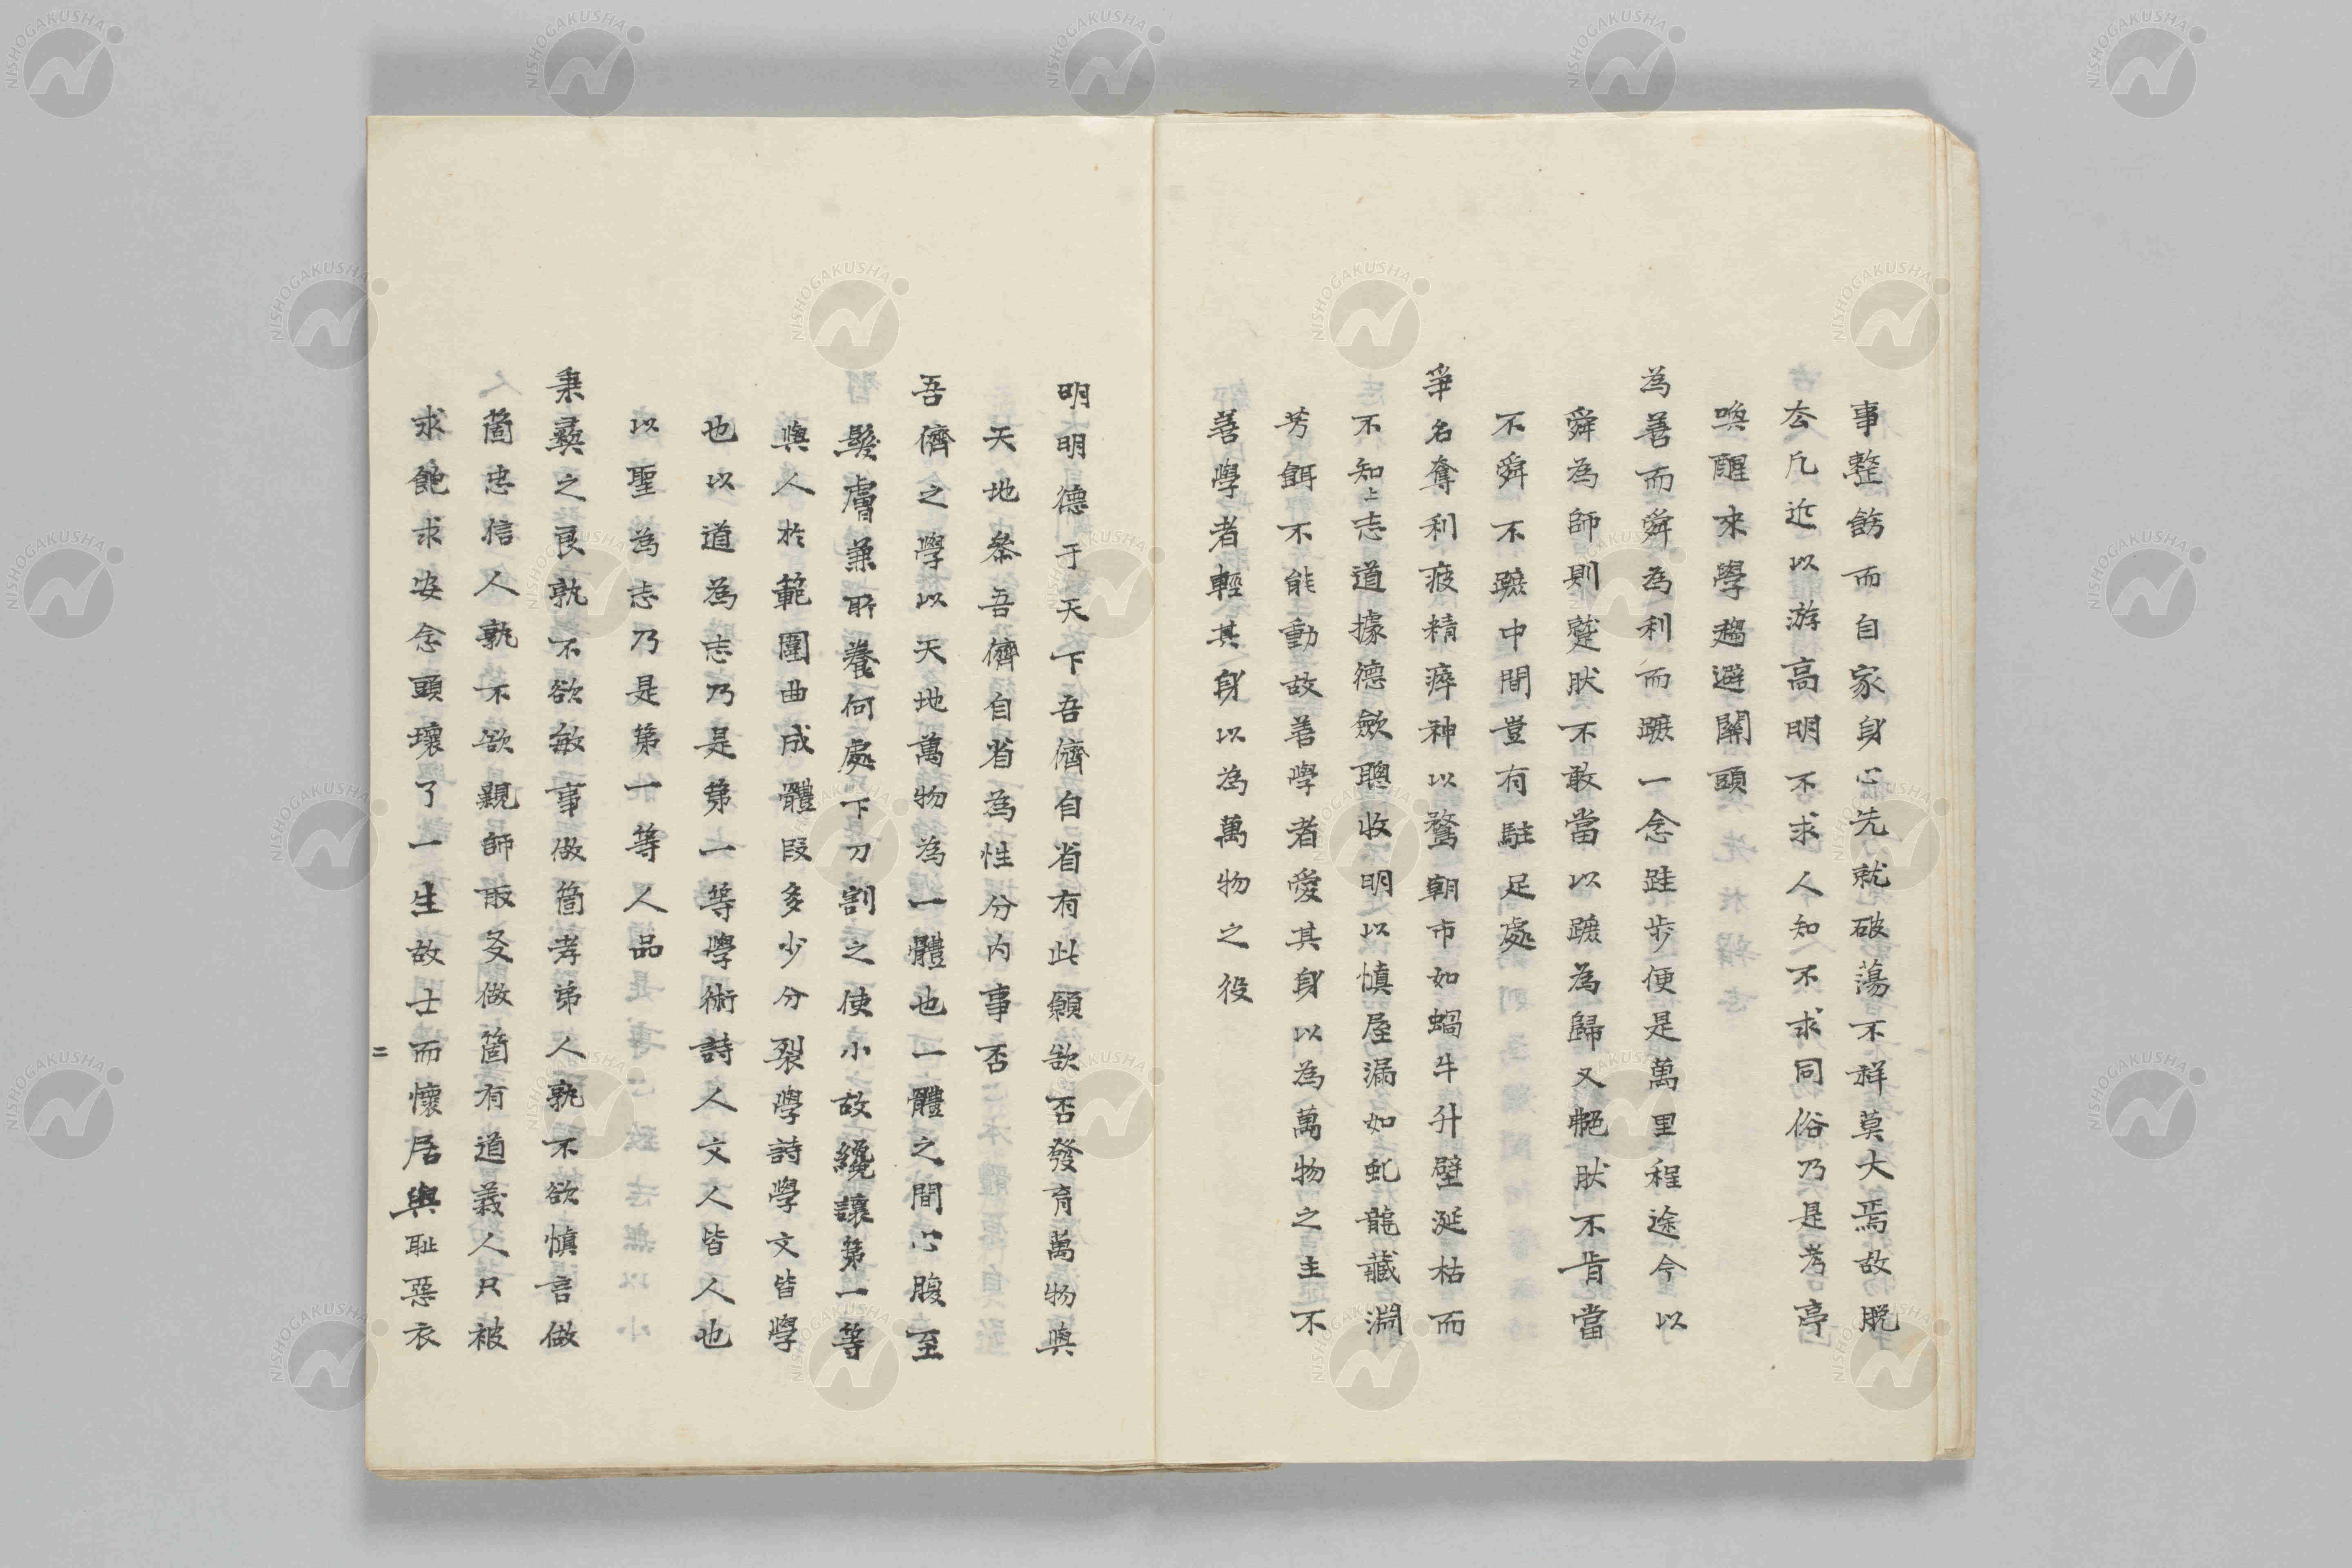 事整飭而自家身心先就破蕩不祥莫大焉故脫
厺凡近以游高明不求人知不求同俗乃是考亭
喚醒來學趨避關頭
為善而舜為利而蹠一念跬步便是萬里程途今以
舜為師則蹵然不敢當以蹠為歸又艴然不肯當
不舜不蹠中間豈有駐足處
爭名奪利疲精瘁神以騖朝市如蝸牛升壁涎枯而
不知上志道據德歛聰收明以慎屋漏如虬龍藏淵
芳餌不能動故善學者愛其身以為萬物之主不
善學者輕其身以為萬物之役
明明德于天下吾儕自省有此願欲否發育萬物與
天地叅吾儕自省為性分內事否
吾儕之學以天地萬物為一體也一體之間心腹至
髮膚兼所養何處下刀割之使小故纔讓第一等
與人於範圍曲成體段多少分裂學詩學文皆學
也以道為志乃是第一等學術詩人文人皆人也
以聖為志乃是第一等人品
秉彝之良孰不欲敏事做箇孝弟人孰不欲慎言做
箇忠信人孰不欲親師取友做箇有道義人只被
求飽求安念頭壞了一生故士而懷居與耻惡衣
二
NISHOGAKUSHA